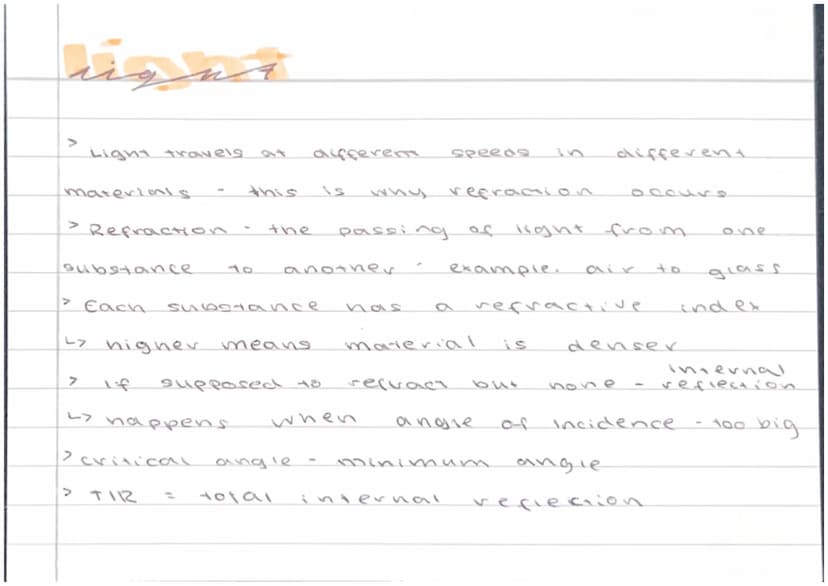 light
> Light travels at different speeds in different
materials - this is why refraction occurs
> Refraction - the passing of light from one
substance to another - example. air to glass
> Each substance has a refractive index
↳ higher means material is denser
> if supposed to refract but none - internal reflection
↳ happens when angle of incidence - too big
> critical angle - minimum angle
> TIR = total internal reflection